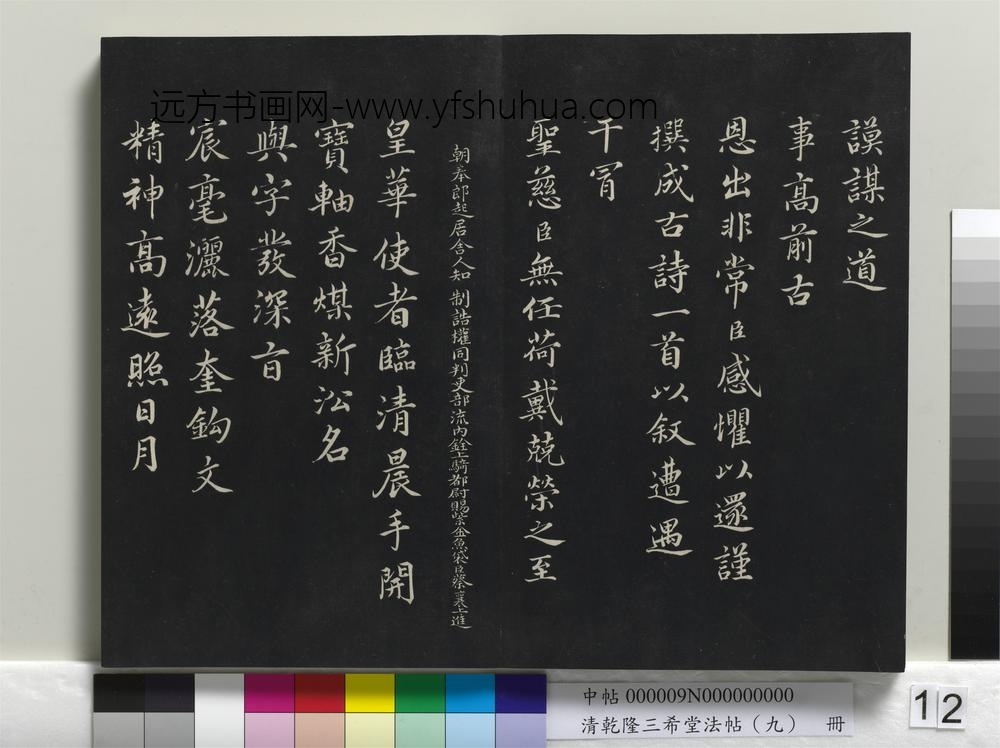 謨謀之道
事高前古
恩出非常臣感懼以還謹
撰成古詩一首以叙遭遇
干冐
聖慈臣無任荷戴兢榮之至
朝奉郎起居舍人知制誥權同判吏部流內銓上騎都尉賜紫金魚袋臣蔡襄上進
皇華使者臨清晨手開
寶軸香煤新沁名
與字發深㫖
宸毫灑落奎鈎文
精神高遠照日月
远方书画网-www.yfshuhua.com
中帖 000009N000000000
清乾隆三希堂法帖（九） 冊
12